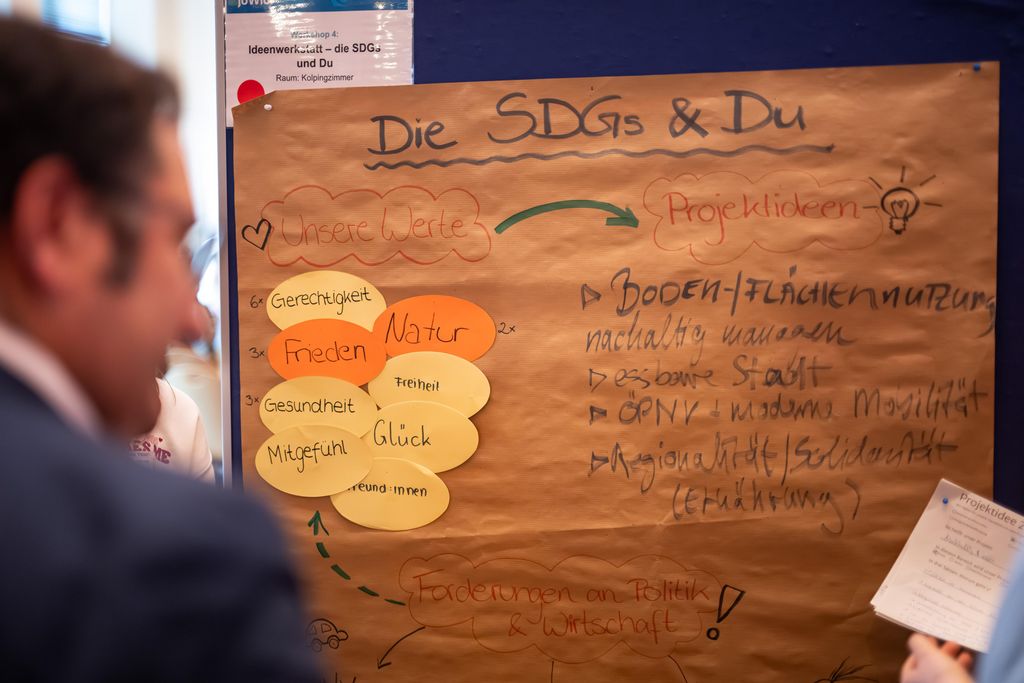 Workshop 4:
Ideenwerkstatt – die SDGs
und Du
Raum: Kolpingzimmer
Die SDGs & Du
Unsere Werte
Projektideen
6x Gerechtigkeit
Natur 2x
3x Frieden
Freiheit
3x Gesundheit
Glück
Mitgefühl
reund:innen
▷ BODEN-/FLÄCHENNUTZUNG
nachaltig managen
▷ essbare Stadt
▷ ÖPNV + moderne Mobilität
▷ Regionalität/Solidarität
(Ernährung)
Forderungen an Politik
& Wirtschaft!
Projektidee